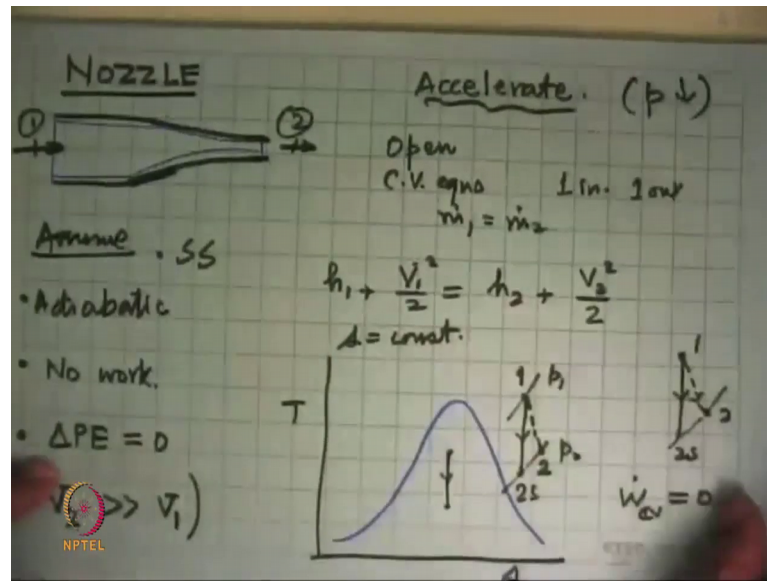 NOZZLE
Accelerate. (p↓)
1
2
Open
C.V. eqns 1 in. 1 out
ṁ₁ = ṁ₂
Assume . SS
• Adiabatic
• No work.
• ΔPE = 0
V₂ >> V₁)
h₁ + V₁²/2 = h₂ + V₂²/2
s = const.
T
1 p₁
2 p₂
2s
1
2
2s
Ẇcv = 0
s
NPTEL